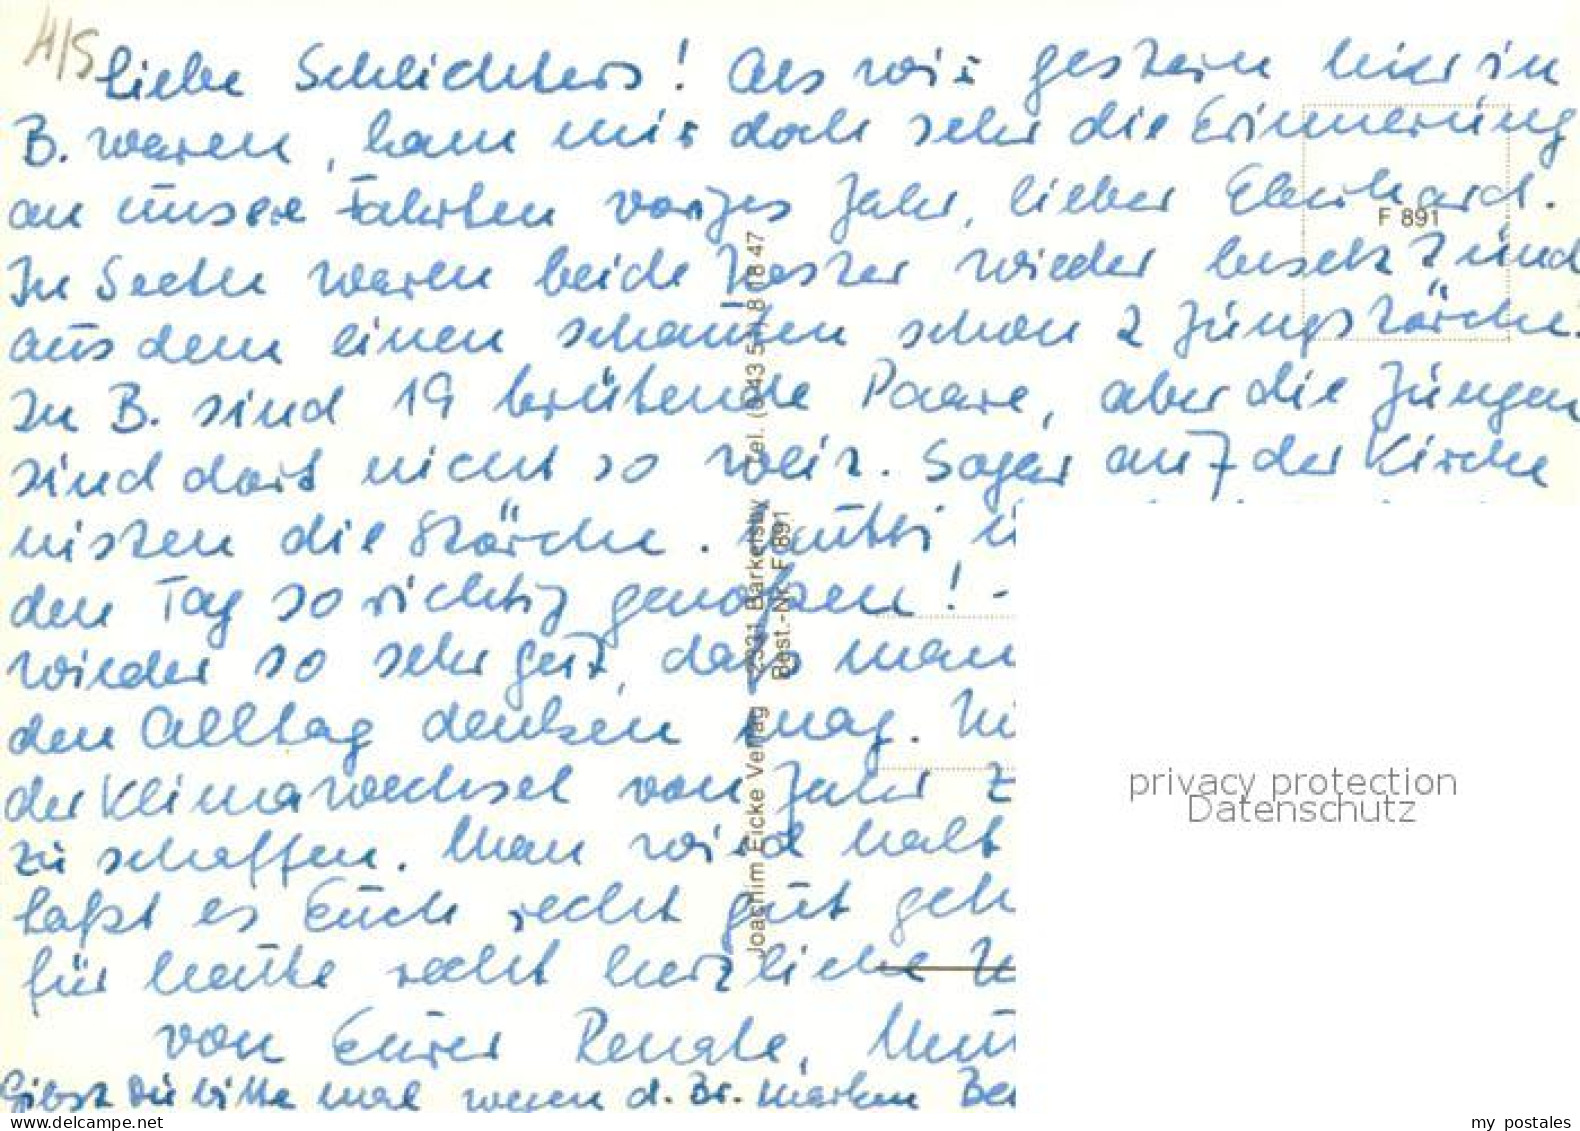 H/S
Liebe Schlichters! Als wir gestern hier in
B. waren, kam mir doch sehr die Erinnerung
an unsere Fahrten voriges Jahr, lieber Eberhard.
In Seeth waren beide Horster wieder besetzt und
aus dem einen schauten schon 2 Jungstörche.
In B. sind 19 brütende Paare, aber die Jungen
sind dort nicht so weit. Sogar auf der Kirche
nisten die Störche. Mutti
den Tag so richtig genoßen! -
wieder so sehr gut, daß man
den Alltag denken mag.
der Klimawechsel von Jahr
zu schaffen. Man wird halt
Laßt es Euch recht gut
für heute recht herzliche
von Eurer Renate,
Gibst Du bitte mal wegen d. Br. Marken
F 891
Joachim Eicke Verlag 2331 Barkelsby Tel. (0 43 51) 8 18 47
Best.-Nr. F 891
privacy protection
Datenschutz
my postales
www.delcampe.net